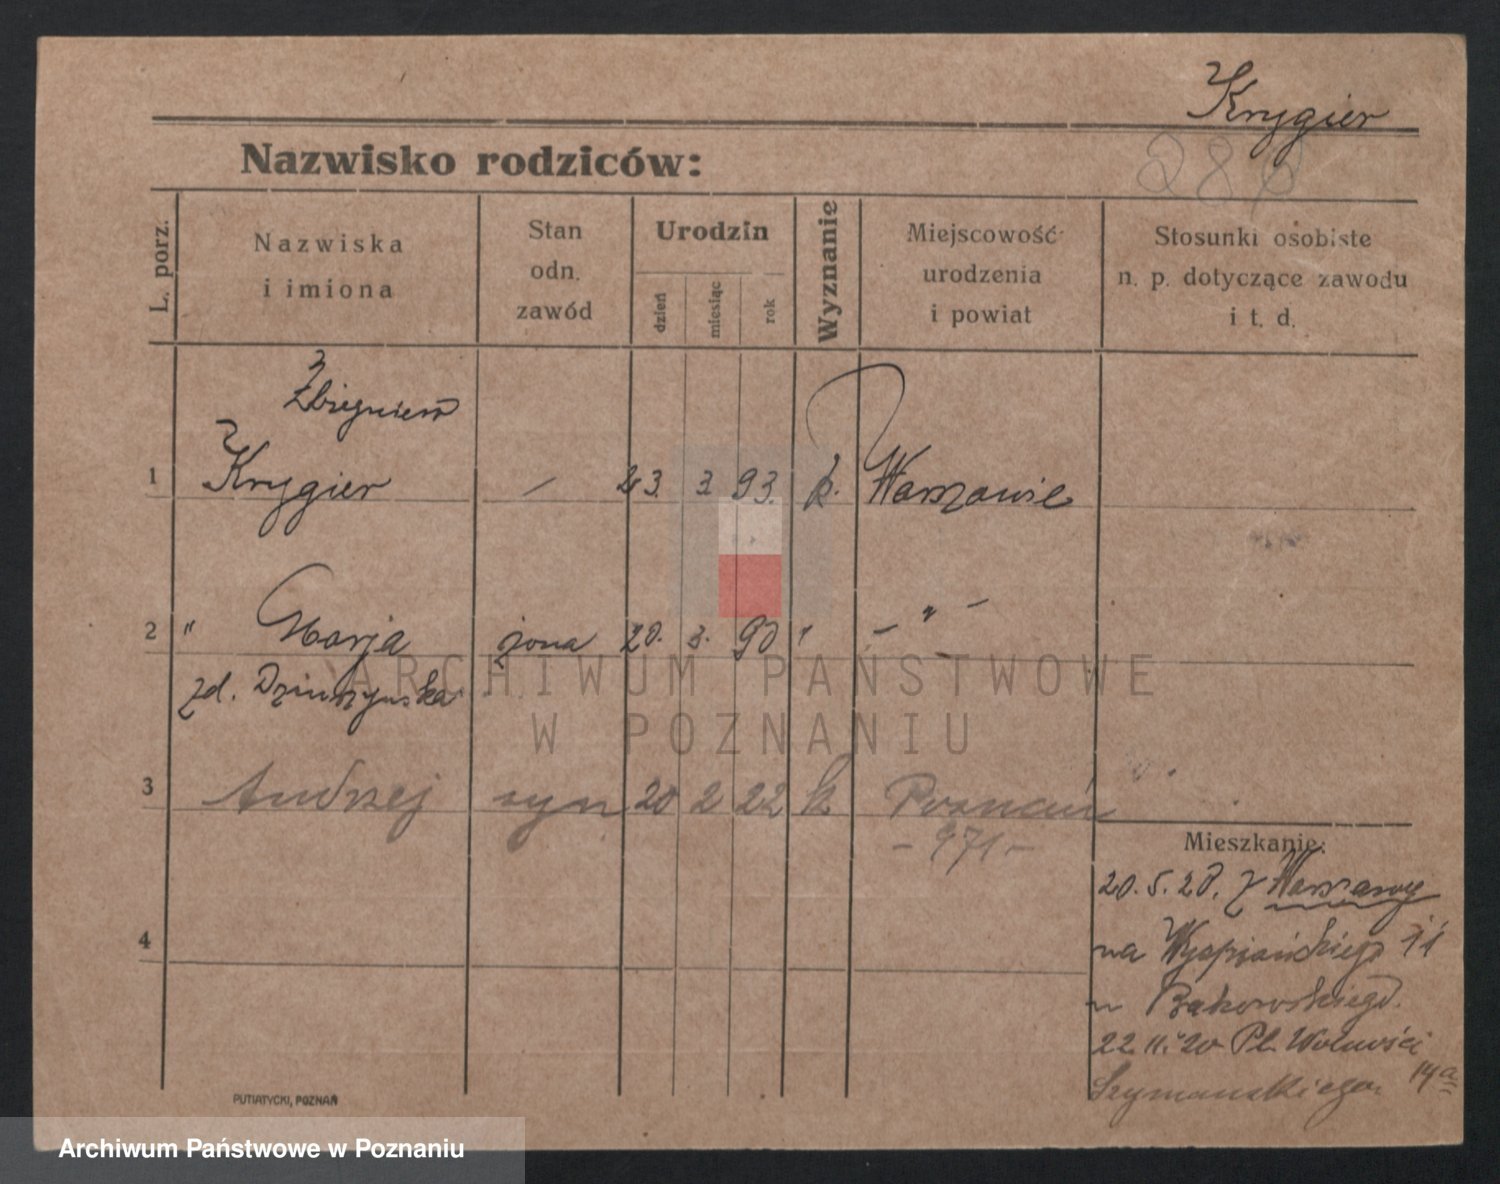 Krygier
Nazwisko rodziców:
L. porz.
Nazwiska
i imiona
Stan
odn.
zawód
Urodzin
dzień
miesiąc
rok
Wyznanie
Miejscowość
urodzenia
i powiat
Stosunki osobiste
n. p. dotyczące zawodu
i t. d.
Zbigniew
1 Krygier — 23. 3. 93. k. Warszawie
2 " Marja żona 20. 3. 90 " — " —
zd.
3 Andrzej syn 20 2 22 k Poznań
- 971 -
4
Mieszkanie:
20. 5. 20. z Warszawy
na Wyspiańskiego 11
u Bąkowskiego.
22 11. 20 Pl. Wolności
14a
Szymańskiego
PUTIATYCKI, POZNAŃ
ARCHIWUM PAŃSTWOWE
W POZNANIU
Archiwum Państwowe w Poznaniu